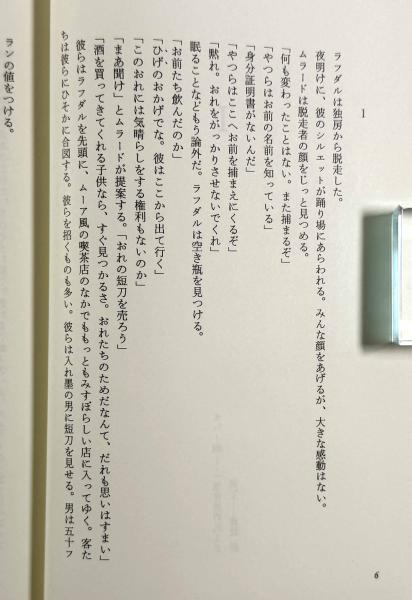 1
ラフダルは独房から脱走した。
夜明けに、彼のシルエットが踊り場にあらわれる。みんな顔をあげるが、大きな感動はない。
ムラードは脱走者の顔をじっと見つめる。
「何も変わったことはない。また捕まるぞ」
「やつらはお前の名前を知っている」
「身分証明書がないんだ」
「やつらはここへお前を捕まえにくるぞ」
「黙れ。おれをがっかりさせないでくれ」
眠ることなどもう論外だ。ラフダルは空き瓶を見つける。
「お前たち飲んだのか」
「ひげのおかげでな。彼はここから出て行く」
「このおれには気晴らしをする権利もないのか」
「まあ聞け」とムラードが提案する。「おれの短刀を売ろう」
「酒を買ってきてくれる子供なら、すぐ見つかるさ。おれたちのためだなんて、だれも思いはすまい」
彼らはラフダルを先頭に、ムーア風の喫茶店のなかでももっともみすぼらしい店に入ってゆく。客た
ちは彼らにひそかに合図する。彼らを招くものも多い。彼らは入れ墨の男に短刀を見せる。男は五十フ
ランの値をつける。
6